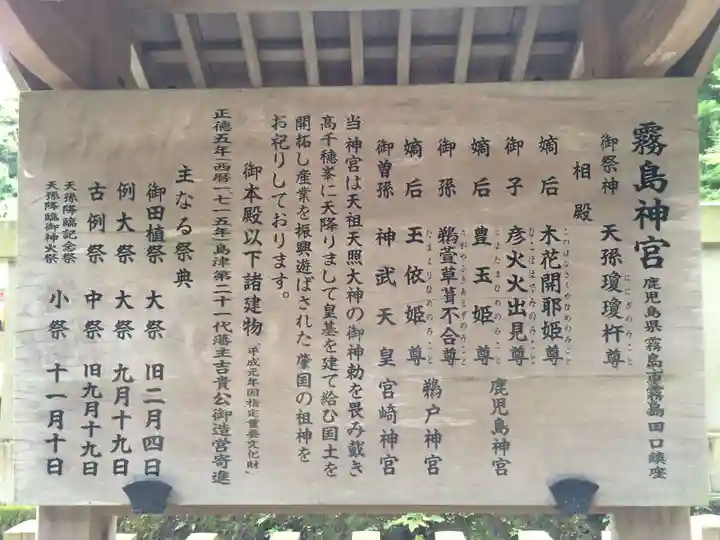 霧島神宮 鹿児島県霧島市霧島田口鎮座
御祭神 天孫瓊瓊杵尊
ににぎのみこと
相殿
嫡后 木花開耶姫尊
このはなさくやひめのみこと
御子 彦火火出見尊 鹿児島神宮
ひこほほでみのみこと
嫡后 豊玉姫尊
とよたまひめのみこと
御孫 鵜萱草葺不合尊 鵜戸神宮
うがやふきあえずのみこと
嫡后 玉依姫尊
たまよりひめのみこと
御曽孫 神武天皇 宮崎神宮
当神宮は天祖天照大神の御神勅を畏み戴き
高千穂峯に天降りまして皇基を建て給ひ国土を
開拓し産業を振興遊ばされた肇国の祖神を
お祀りしております。
御本殿以下諸建物「平成元年国指定重要文化財」
正徳五年(西暦一七一五年)島津第二十一代藩主吉貴公御造営寄進
主なる祭典
御田植祭 大祭 旧二月四日
例大祭 大祭 九月十九日
古例祭 中祭 旧九月十九日
天孫降臨記念祭
天孫降臨御神火祭 小祭 十一月十日